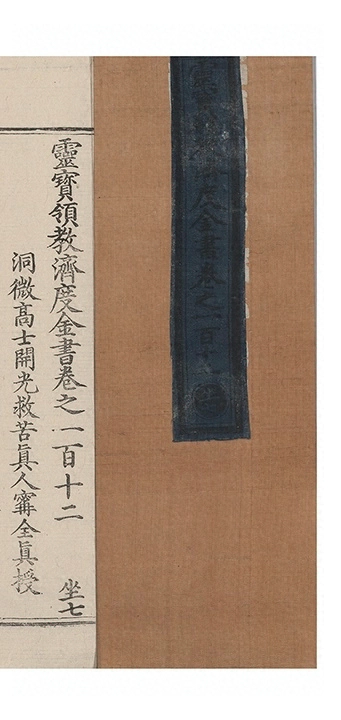 度金書卷之一百十
靈寳領教濟度金書卷之一百十二
坐七
洞微髙士開光救苦眞人寗全眞授